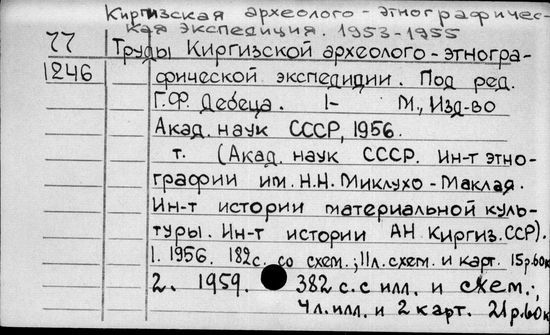 Киргизская археолого-этнографичес-
кая экспедиция. 1953-1955
77 Труды Киргизской археолого-этногра-
1246 фической экспедиции. Под ред.
Г.Ф. Дебеца. 1- М., Изд-во
Акад. наук СССР, 1956.
т. (Акад. наук СССР. Ин-т этно-
графии им. Н.Н. Миклухо-Маклая.
Ин-т истории материальной куль-
туры. Ин-т истории АН Киргиз.ССР).
1. 1956. 182с. со схем.; 11л.схем. и карт. 15р.60к
2. 1959. 382 с. с илл. и схем.;
4л.илл. и 2 карт. 21р.60к